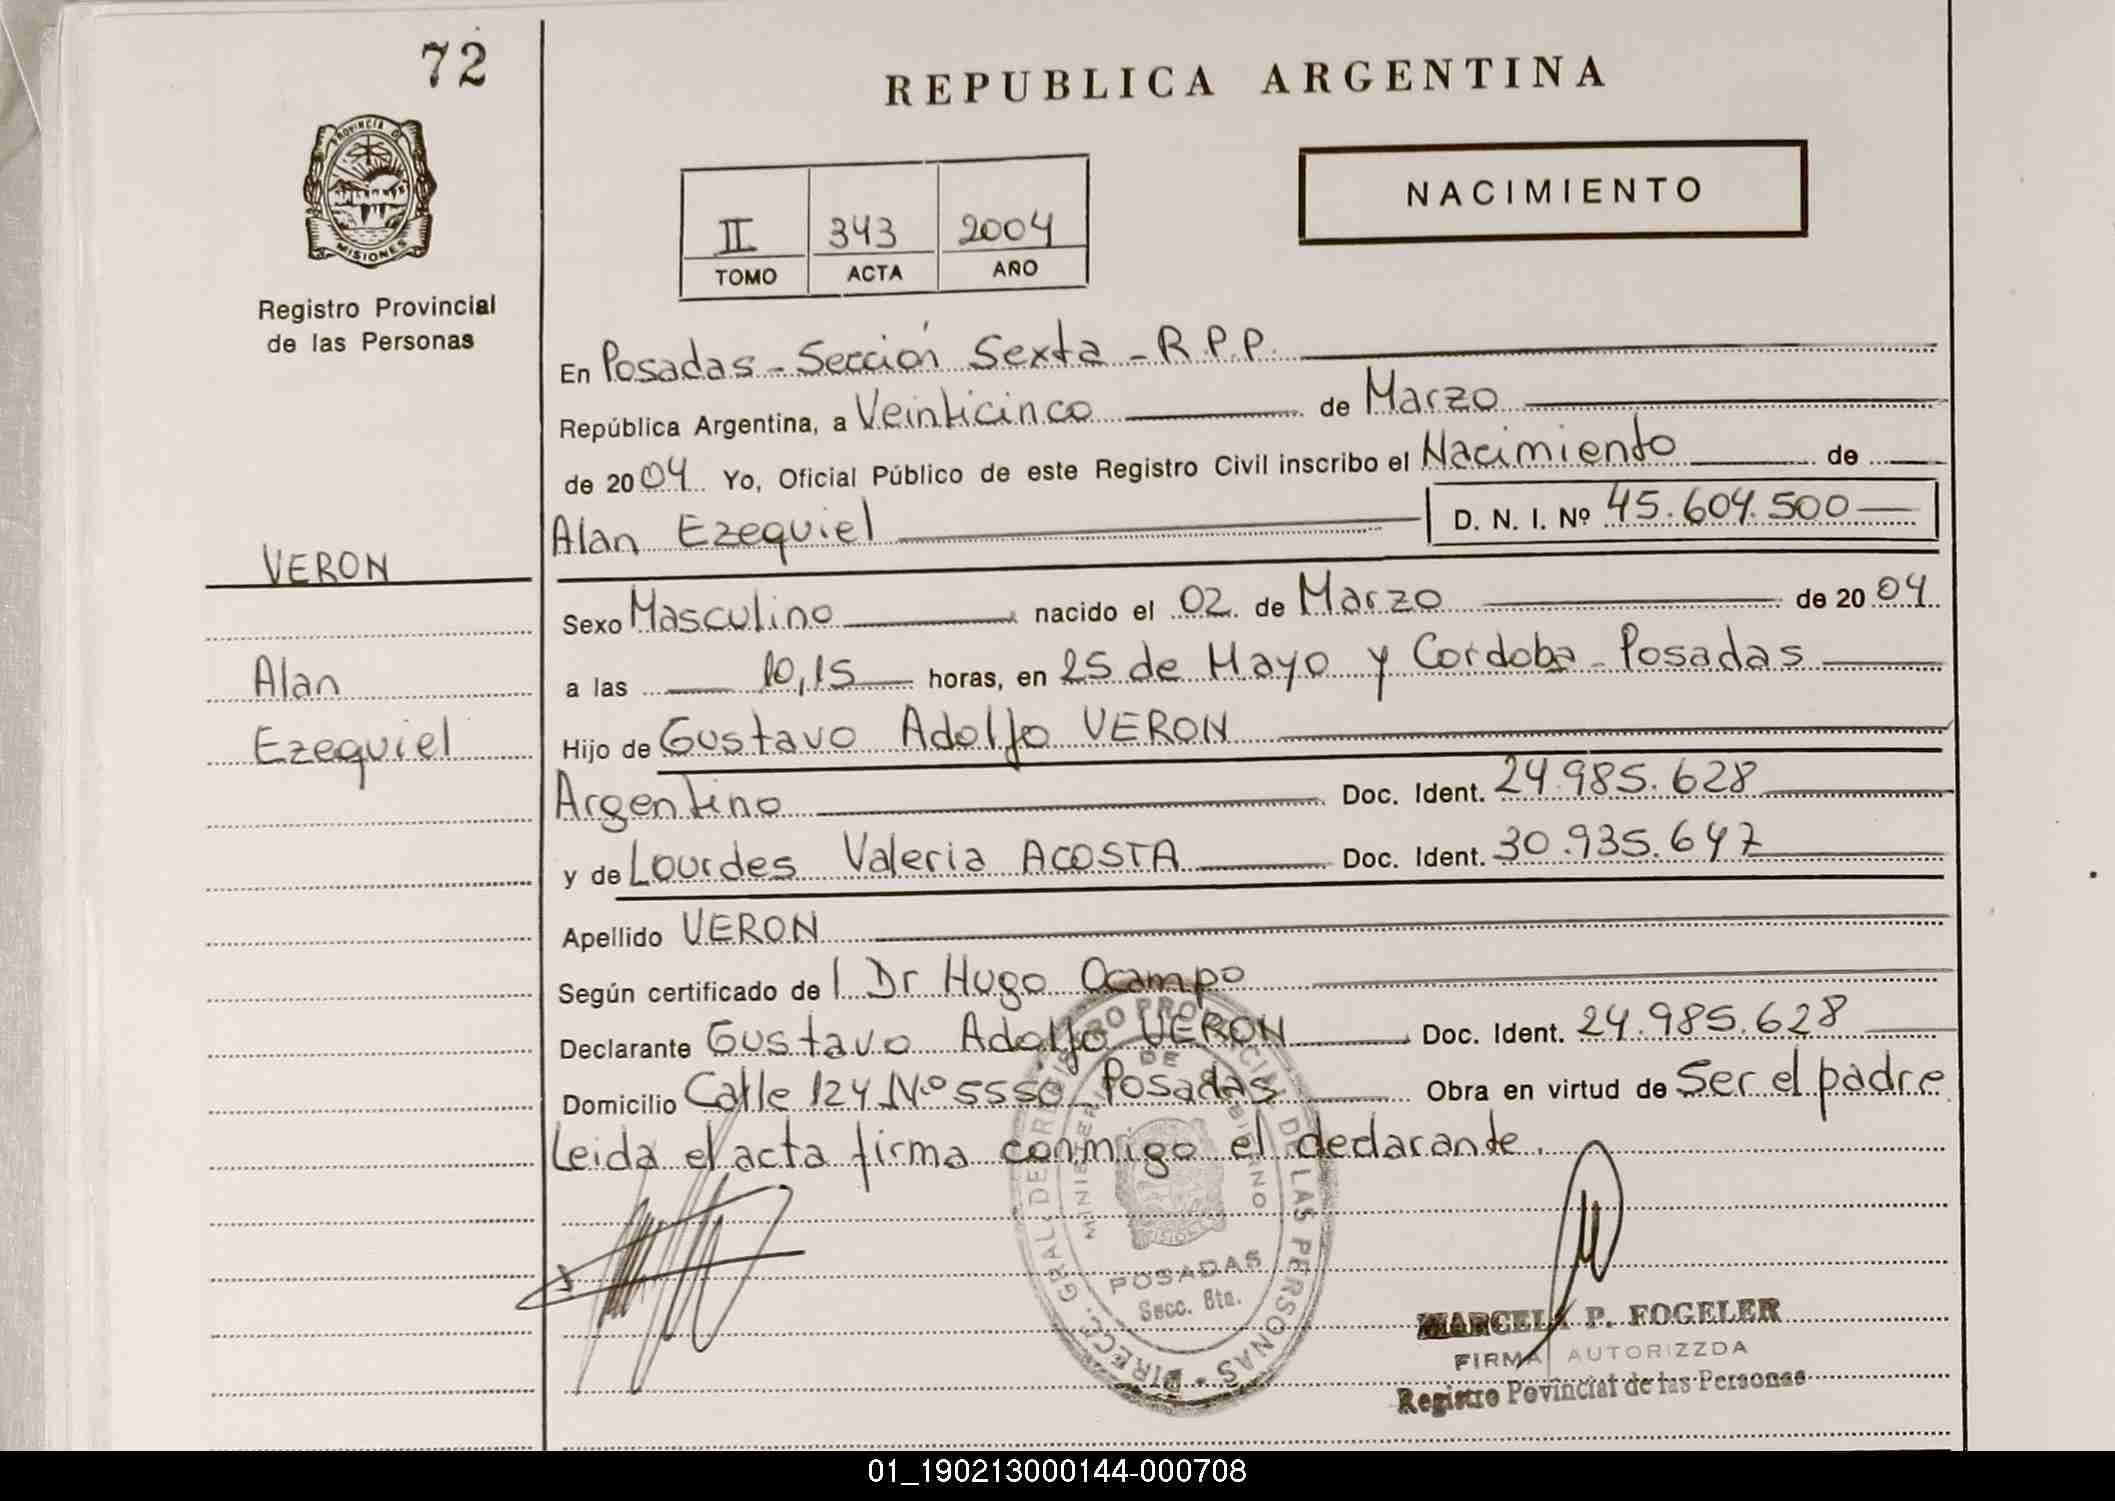 72
REPUBLICA ARGENTINA
PROVINCIA D
MISIONES
Registro Provincial
de las Personas
NACIMIENTO
II 343 2004
TOMO ACTA AÑO
En Posadas - Sección Sexta - R.P.P.
República Argentina, a Veinticinco de Marzo
de 2004 Yo, Oficial Público de este Registro Civil inscribo el Nacimiento de
Alan Ezequiel D. N. I. Nº 45.604.500
VERON
Sexo Masculino nacido el 02 de Marzo de 2004
Alan
a las 10,15 horas, en 25 de Mayo y Cordoba - Posadas
Ezequiel
Hijo de Gustavo Adolfo VERON
Argentino Doc. Ident. 24.985.628
y de Lourdes Valeria ACOSTA Doc. Ident. 30.935.647
Apellido VERON
Según certificado de l Dr Hugo Ocampo
Declarante Gustavo Adolfo VERON Doc. Ident. 24.985.628
Domicilio Calle 124 Nº 5550 Posadas Obra en virtud de Ser el padre
Leida el acta firma conmigo el declarante.
DIRECC. GRAL. DE REGISTRO PROVINCIAL DE LAS PERSONAS
MINISTERIO DE GOBIERNO
MISIONES
POSADAS
Secc. 6ta.
MARCELA P. FOGELER
FIRMA AUTORIZZDA
Registro Povincial de las Personas
01_190213000144-000708